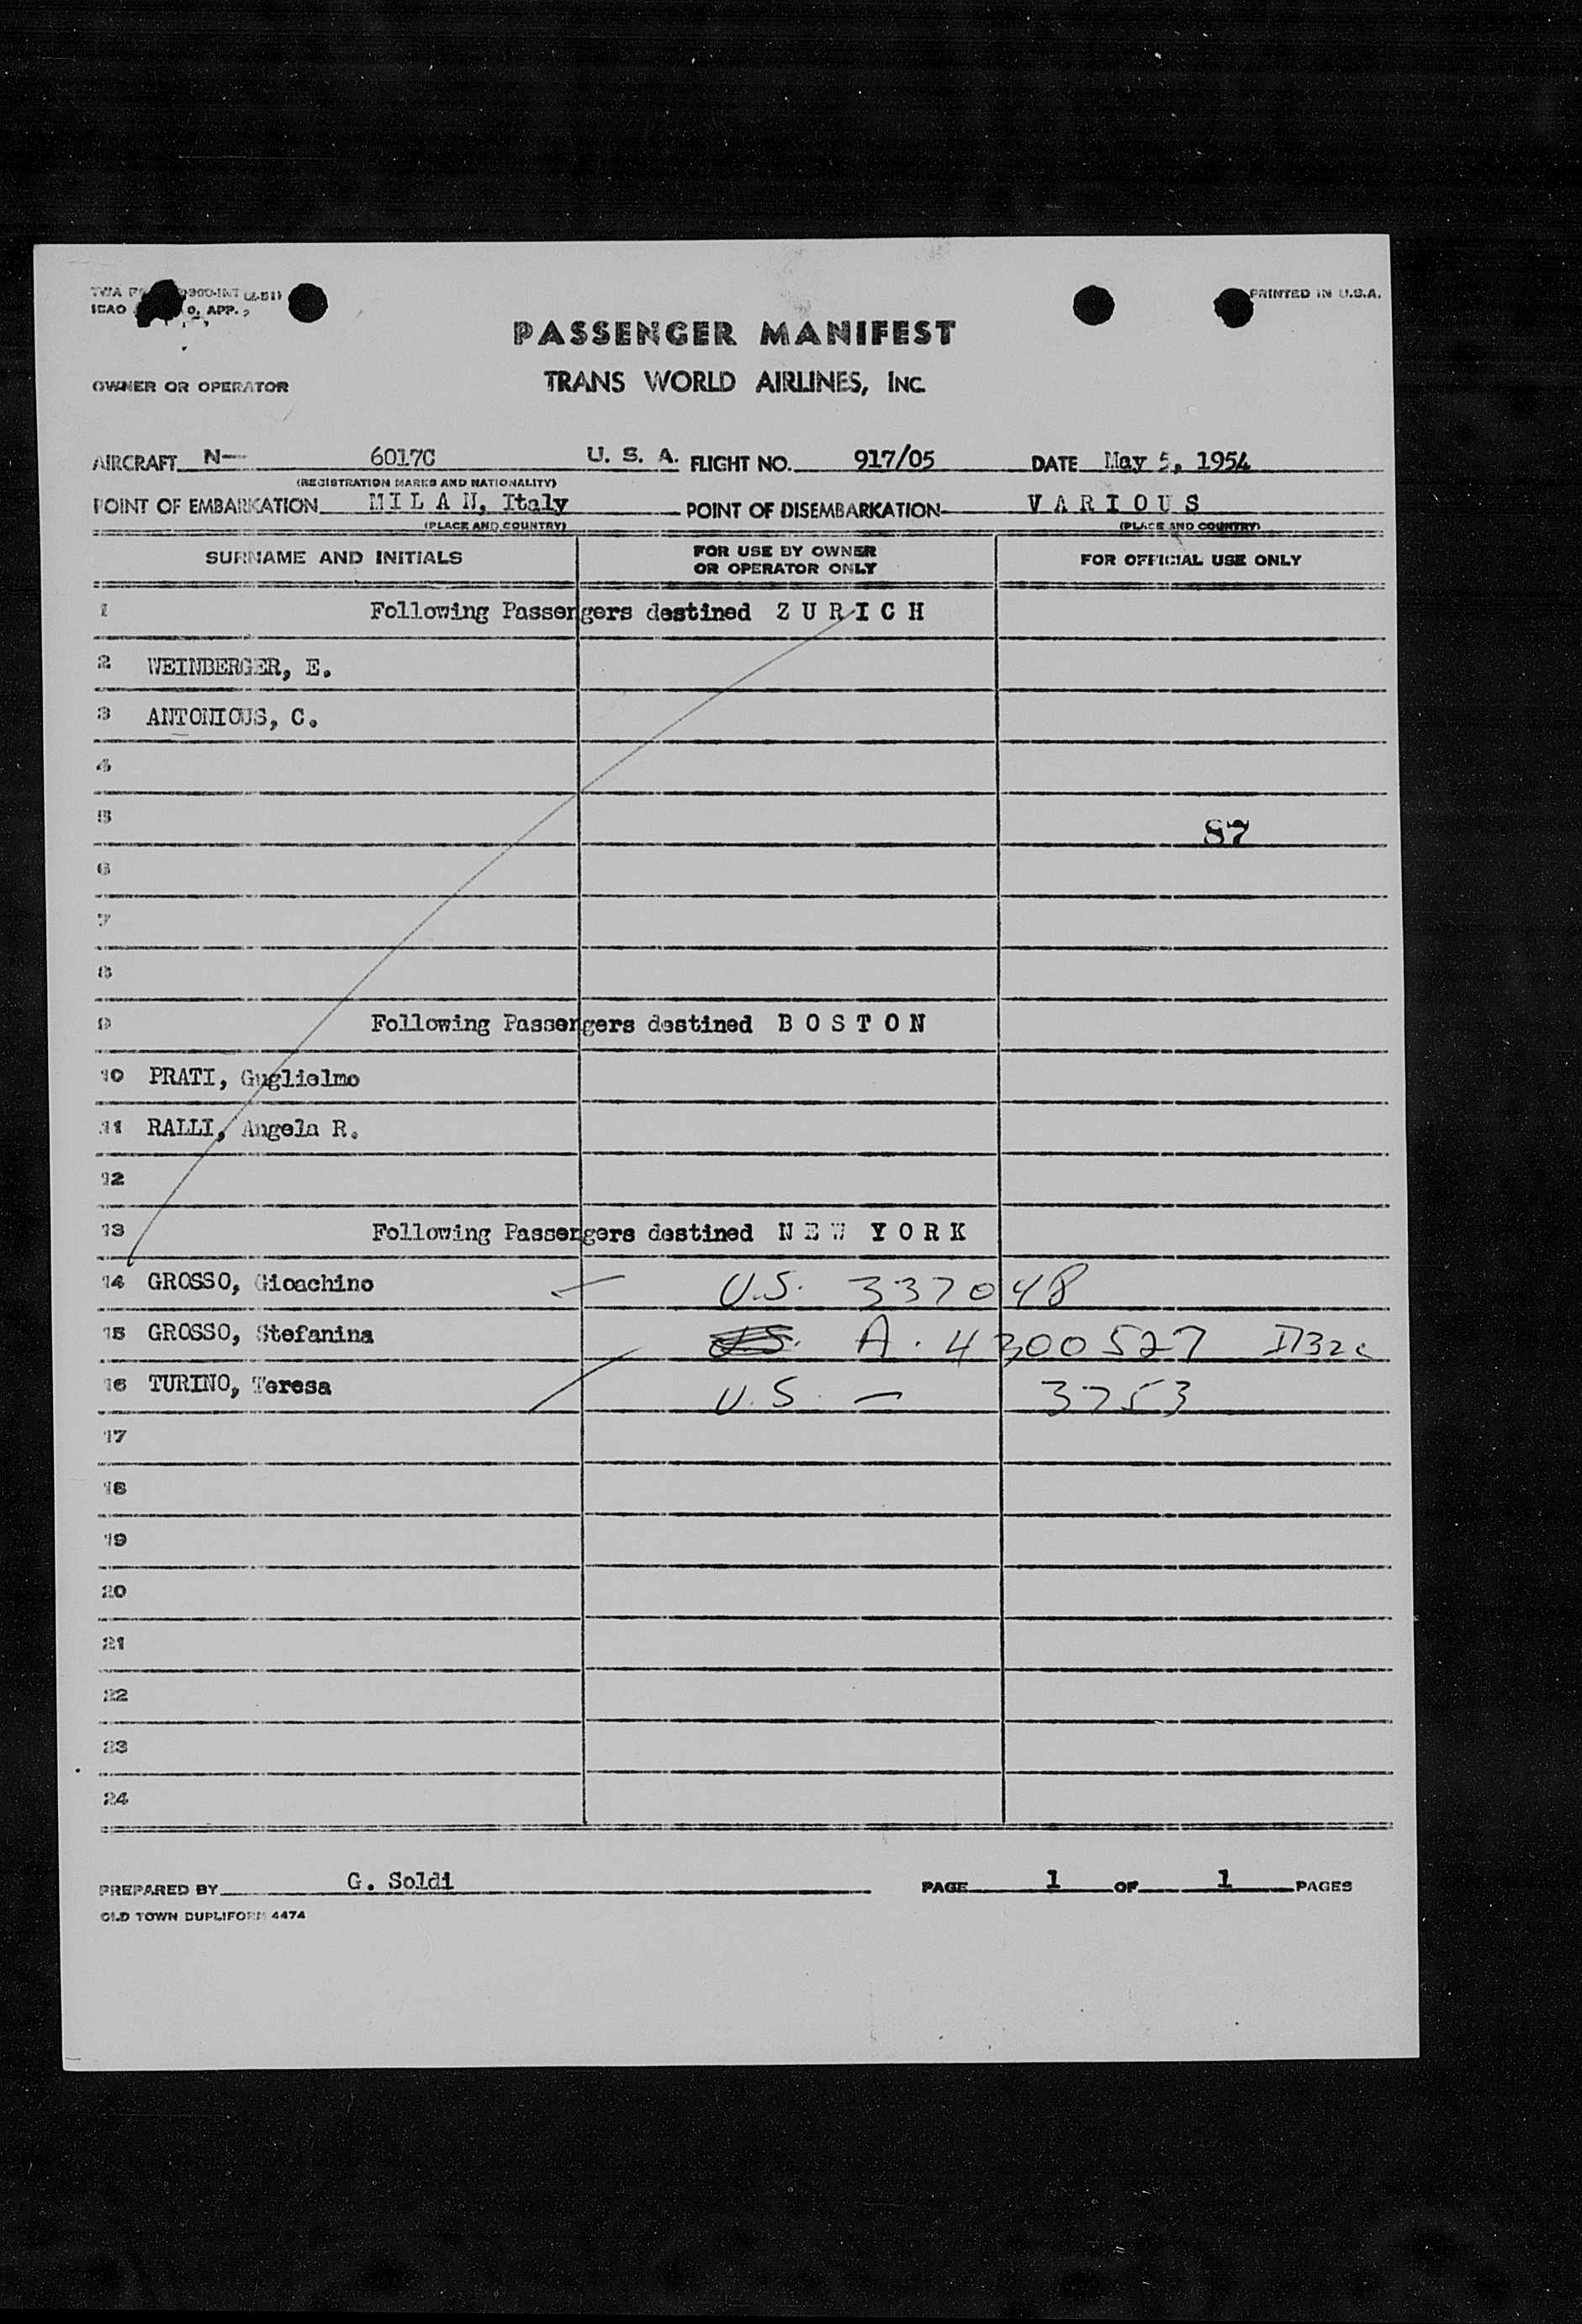 TWA (2-51)
ICAO O, APP.
PRINTED IN U.S.A.
PASSENGER MANIFEST
OWNER OR OPERATOR TRANS WORLD AIRLINES, INC.
AIRCRAFT N— 6017C U. S. A. FLIGHT NO. 917/05 DATE May 5, 1954
(REGISTRATION MARKS AND NATIONALITY)
POINT OF EMBARKATION M I L A N, Italy POINT OF DISEMBARKATION V A R I O U S
(PLACE AND COUNTRY) (PLACE AND COUNTRY)
SURNAME AND INITIALS FOR USE BY OWNER OR OPERATOR ONLY FOR OFFICIAL USE ONLY
1 Following Passengers destined Z U R I C H
2 WEINBERGER, E.
3 ANTONIOUS, C.
4
5 87
6
7
8
9 Following Passengers destined B O S T O N
10 PRATI, Guglielmo
11 RALLI, Angela R.
12
13 Following Passengers destined N E W Y O R K
14 GROSSO, Gioachino U.S. 337048
15 GROSSO, Stefanina A. 4300527
16 TURINO, Teresa U.S. — 3753
17
18
19
20
21
22
23
24
PREPARED BY G. Soldi PAGE 1 OF 1 PAGES
OLD TOWN DUPLIFORM 4474